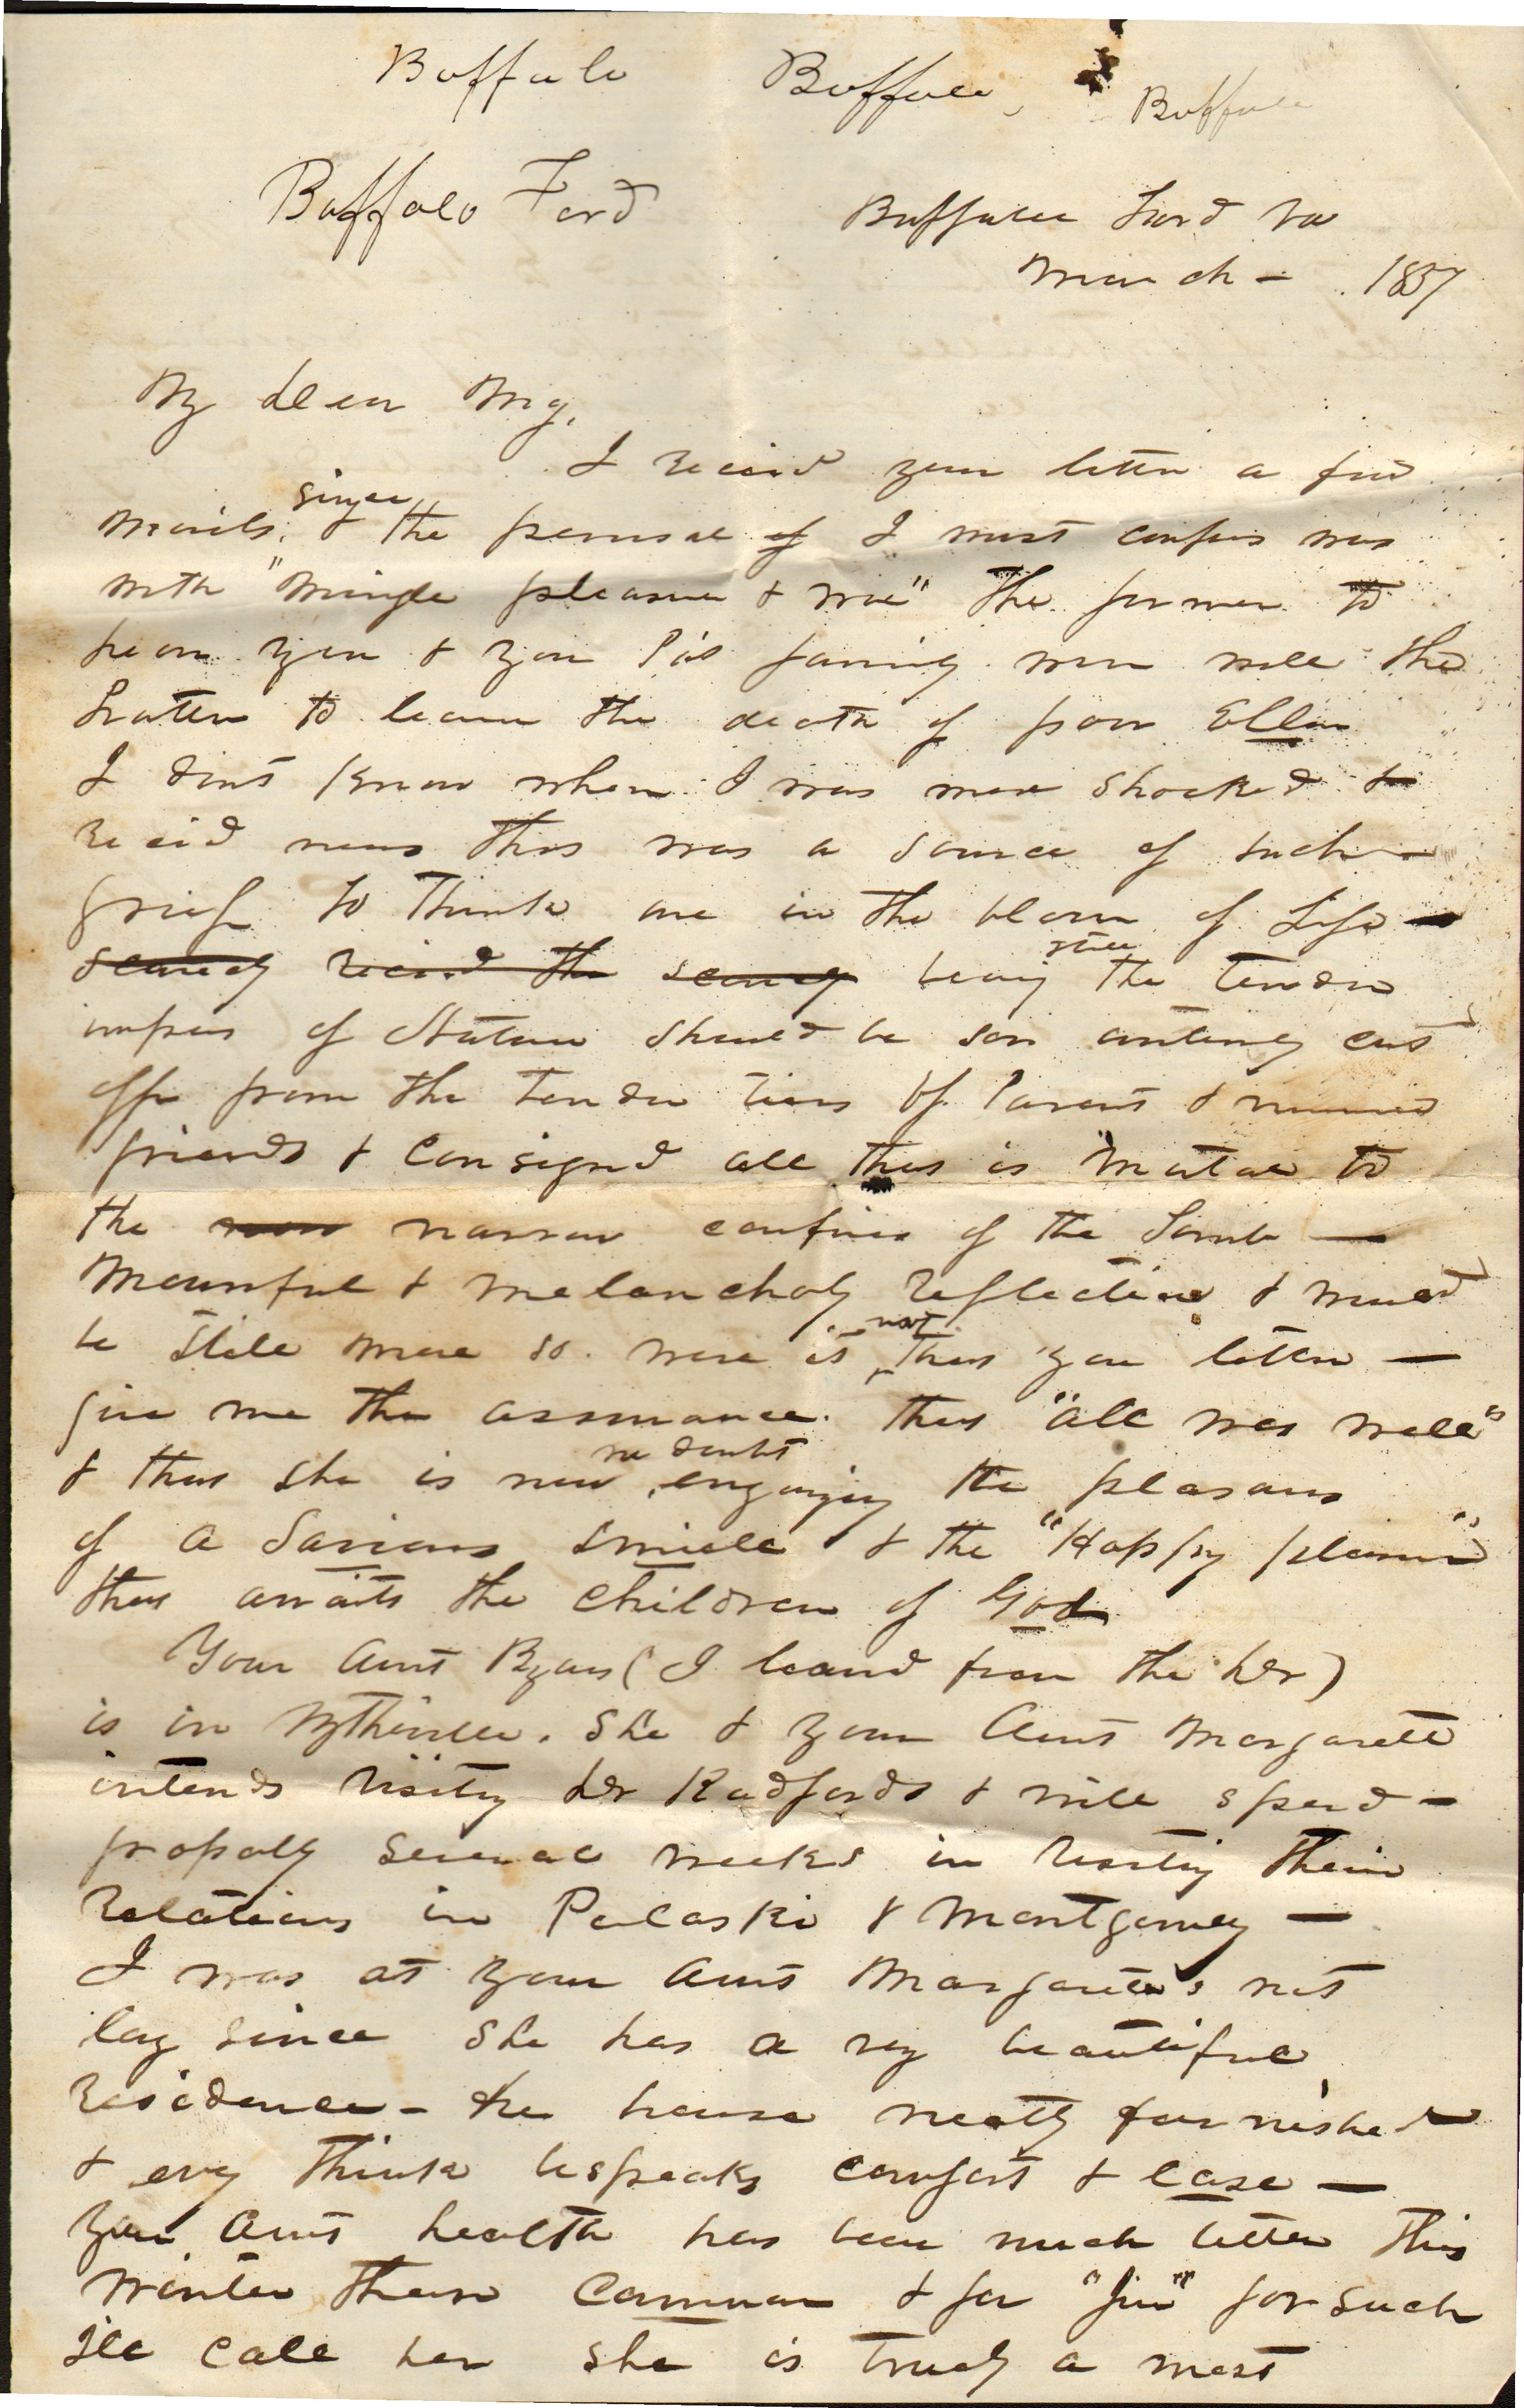 Buffalo Buffalo, Buffalo
Buffalo Ford
Buffalo Ford Va
March – 1857
My dear My,
I receivd your letter a few
since
mails, & the perusal of I must confess was
with "mingle pleasure & woe" The former to
hear you & your Pas family were well the
Latter to learn the death of poor Ellen
I dont know when I was more shocked &
receivd news that was a source of such –
grief to Think one in the bloom of Life –
scarcely receivd the scarcely being the tender
still
impress of Nature should be soon entirely cut
off from the tender ties of Parents &
friends & consignd all that is "mortal to
the narrow confines of the Tomb —
Mournful & melancholy reflection & would
be still more so. were it that your letter —
not
give me the assurance. that "all was well"
& that she is now enjoying the pleasures
no doubt
of a Saviours Smile & the "Happy pleasures"
that awaits the children of God
Your Aunt Byars (I leand from the Dr)
is in Wytheville. She & your Aunt Margarett
intends visitig Dr Radfords & will spend –
propably several weeks in visitig their
relations in Pulaski & Montgomery —
I was at your Aunt Margarett's not
log since She has a vey beautiful
residence – the house neatly furnished
& evey think bespeaks comfort & ease —
your Aunts health has been much better this
winter than common & for "Jin" for such
Ill call her she is truely a most